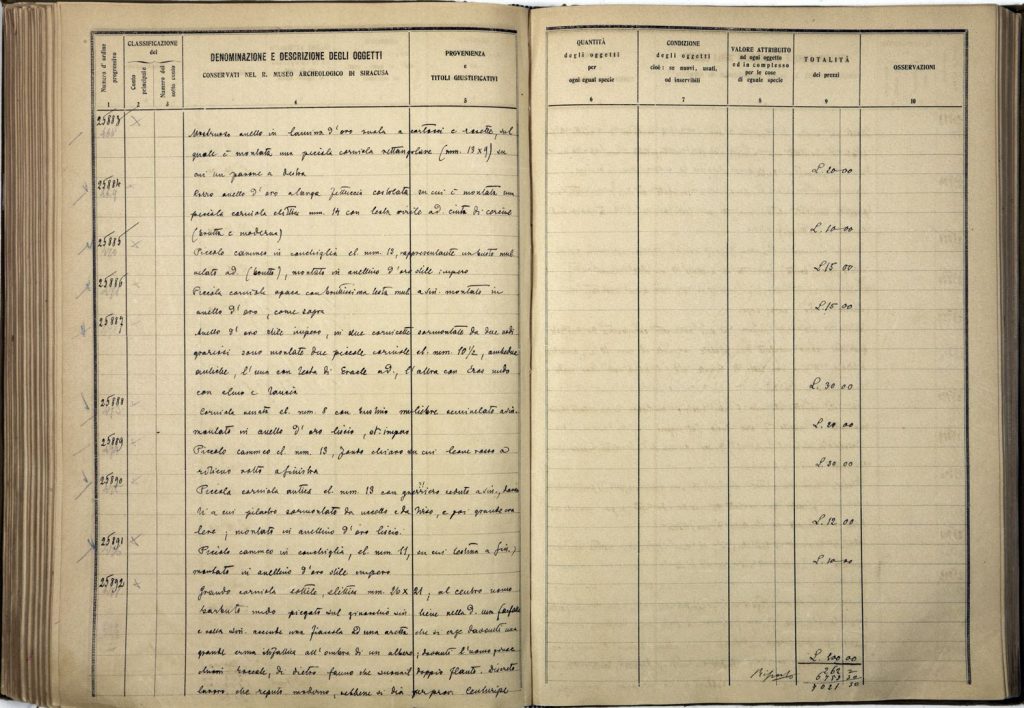 Numero d'ordine progressivo
CLASSIFICAZIONE del
Conto principale
Numero del sotto conto
DENOMINAZIONE E DESCRIZIONE DEGLI OGGETTI
CONSERVATI NEL R. MUSEO ARCHEOLOGICO DI SIRACUSA
PROVENIENZA
e
TITOLI GIUSTIFICATIVI
QUANTITÀ
degli oggetti
per
ogni egual specie
CONDIZIONE
degli oggetti
cioè: se nuovi, usati,
od inservibili
VALORE ATTRIBUITO
ad ogni oggetto
ed in complesso
per le cose
di eguale specie
TOTALITÀ
dei prezzi
OSSERVAZIONI
1 2 3 4 5 6 7 8 9 10
25883
Mostruoso anello in lamina d'oro vuota a cartocci e rosette, sul
quale è montata una piccola corniola rettangolare (mm. 13 x 9) su
cui un pavone a destra
L. 20 00
25884
anello d'oro a larga fettuccia costolata su cui è montata una
piccola corniola elittica mm. 14 con testa virile ad. cinta di corona
(brutta e moderna)
L. 10 00
25885
Piccolo cammeo in conchiglia el. mm. 13, rappresentante un busto mul
ad. (brutto), montato in anellino d'oro stile impero
L. 15 00
25886
Piccola corniola opaca con bruttissima testa mul. a sin. montata in
anello d'oro, come sopra
L. 15 00
25887
Anello d'oro stile impero, in due cornicette sormontate da due
graziosi sono montate due piccole corniole el. mm. 10 1/2, ambedue
antiche, l'una con testa di Eracle ad., l'altra con Eros nudo
con elmo e lancia
L. 30 00
25888
Corniola el. mm. 8 con bustino muliebre a sin.
montata in anello d'oro liscio, st. impero
L. 20 00
25889
Piccolo cammeo el. mm. 13, fondo chiaro su cui leone rosso a
rilievo volto a sinistra
L. 30 00
25890
Piccola corniola antica el. mm. 13 con guerriero seduto a sin., davan
ti a cui pilastro sormontato da uccello e da tirso, e poi grande
; montata in anellino d'oro liscio.
L. 12 00
25891
Piccolo cammeo in conchiglia, el. mm 11, su cui testina a sin.,
montato in anellino d'oro stile impero
L. 10 00
25892
Grande corniola sottile, elittica mm. 26 x 21; al centro uomo
barbuto nudo piegato sul ginocchio sin. tiene nella d. una farfalla
e colla sin. accende una fiaccola ad una aretta che si erge davanti una
grande erma itifallica all'ombra di un albero; davanti l'uomo
, di dietro fauno che suona il doppio flauto. Discreto
lavoro che reputo moderno, sebbene si dia per prov. Centuripe
L. 100 00
Riporto
262 =
6759 30
7021 30